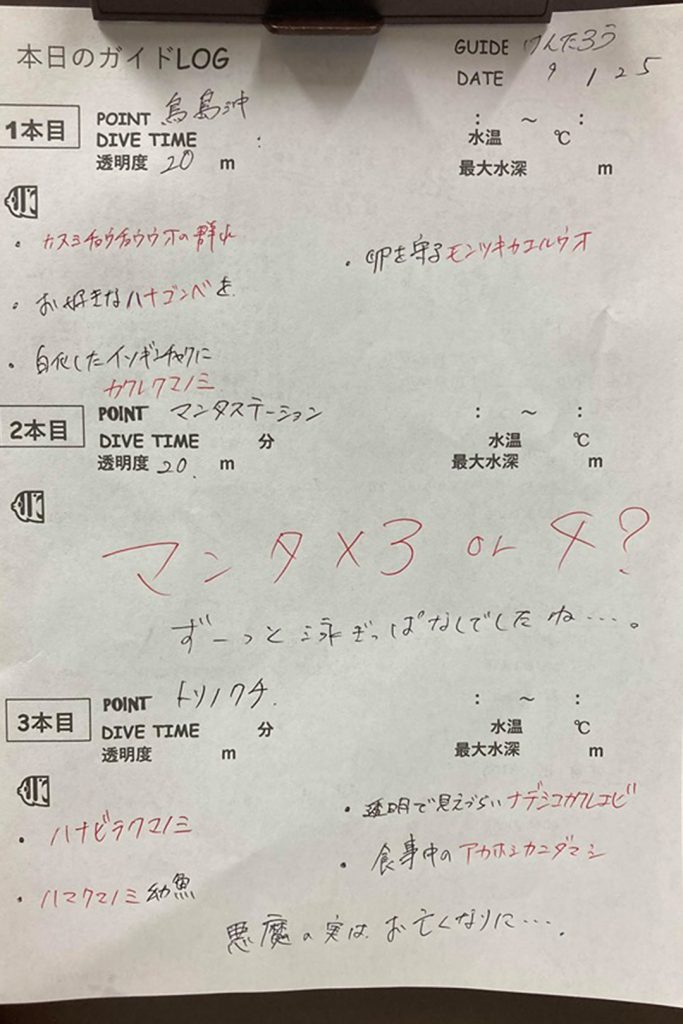 本日のガイドLOG
GUIDE けんたろう
DATE 9 1 25
1本目
POINT 鳥島沖
DIVE TIME :
: ～ :
透明度 20 m
水温 ℃
最大水深 m
・カスミチョウチョウウオの群れ
・お好きなハナゴンベを
・白化したイソギンチャクに
カクレクマノミ
・卵を守るモンツキカエルウオ
2本目
POINT マンタステーション
: ～ :
DIVE TIME 分
水温 ℃
透明度 20. m
最大水深 m
マンタ×3 or 4?
ずーっと泳ぎっぱなしでしたね…。
3本目
POINT トリノクチ.
: ～ :
DIVE TIME 分
水温 ℃
透明度 m
最大水深 m
・ハナビラクマノミ
・ハマクマノミ幼魚
・透明で見えづらいナデシコカクレエビ
・食事中のアカホシカニダマシ
悪魔の実は、お亡くなりに….